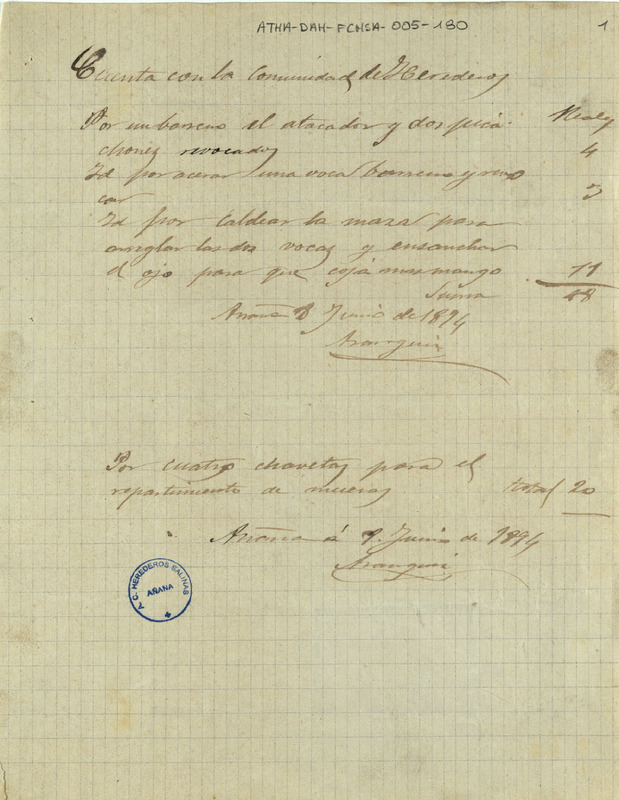 ATHA-DAH-FCHSA-005-180
1
Cuenta con la Comunidad de Herederos
Reales
Por un barreno el atacador y dos pica-
chones revocados 4
Id por acerar una voca barreno y revo
car 3
Id por caldear la maza para
arreglar las dos vocas y ensanchar
el ojo para que coja mas mango 11
Suma 18
Añana 8 Junio de 1894
Aranguiz
Por cuatro chavetas para el
repartimiento de mueras total 20
Añana á 9 Junio de 1894
Aranguiz
A. C. HEREDEROS SALINAS
AÑANA